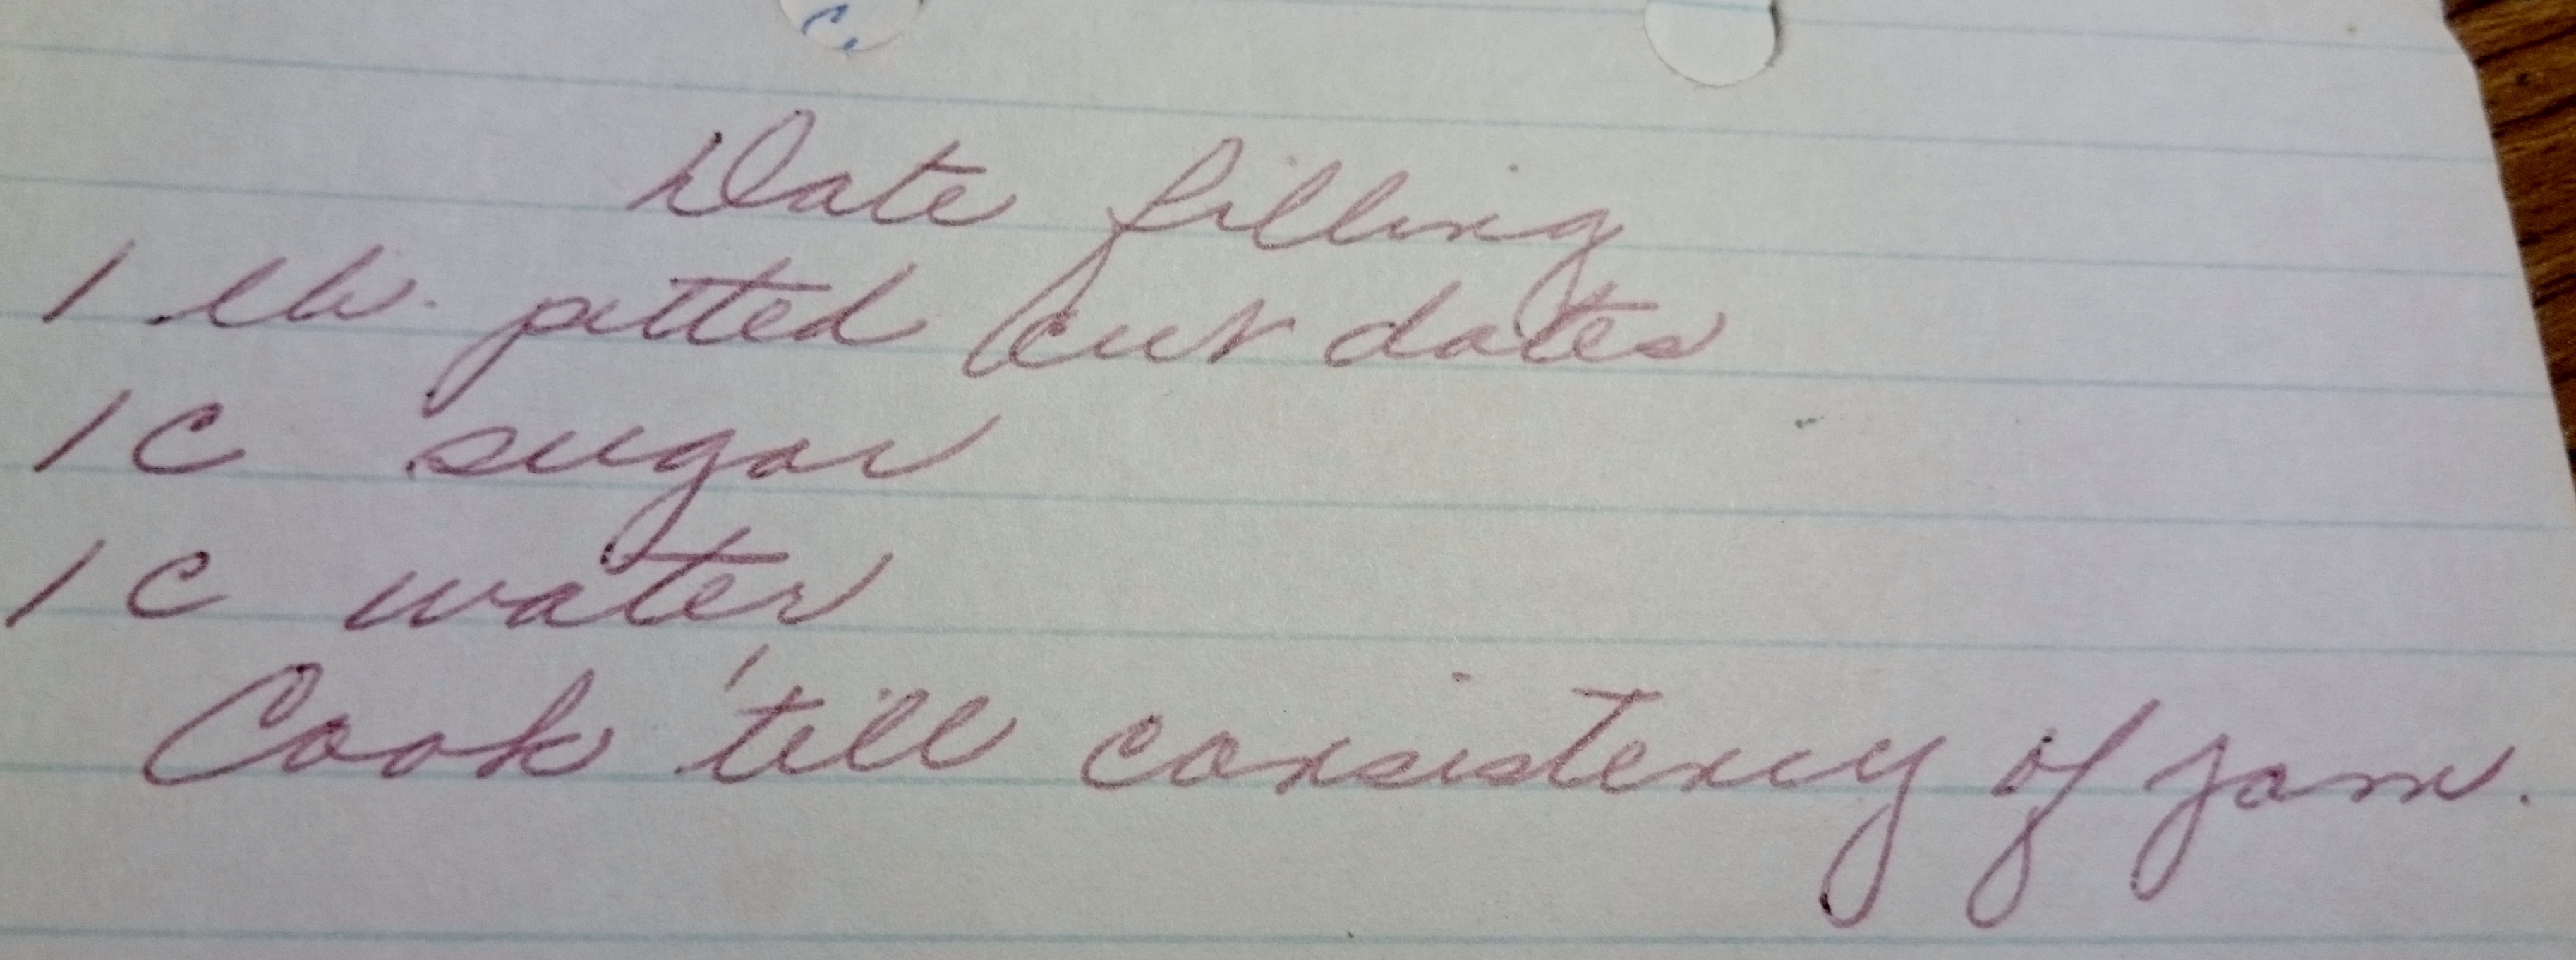 Date filling
1 lb. pitted cut dates
1 C sugar
1 C water
Cook 'till consistency of jam.